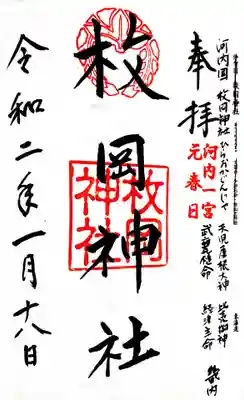 河内国 枚岡神社 ひらおかじんじゃ 天児屋根大神 比売御神
武甕槌命 経津主命
畿内
奉拝
河内一宮
元春日
枚岡神社
枚岡
神社
令和二年一月十八日